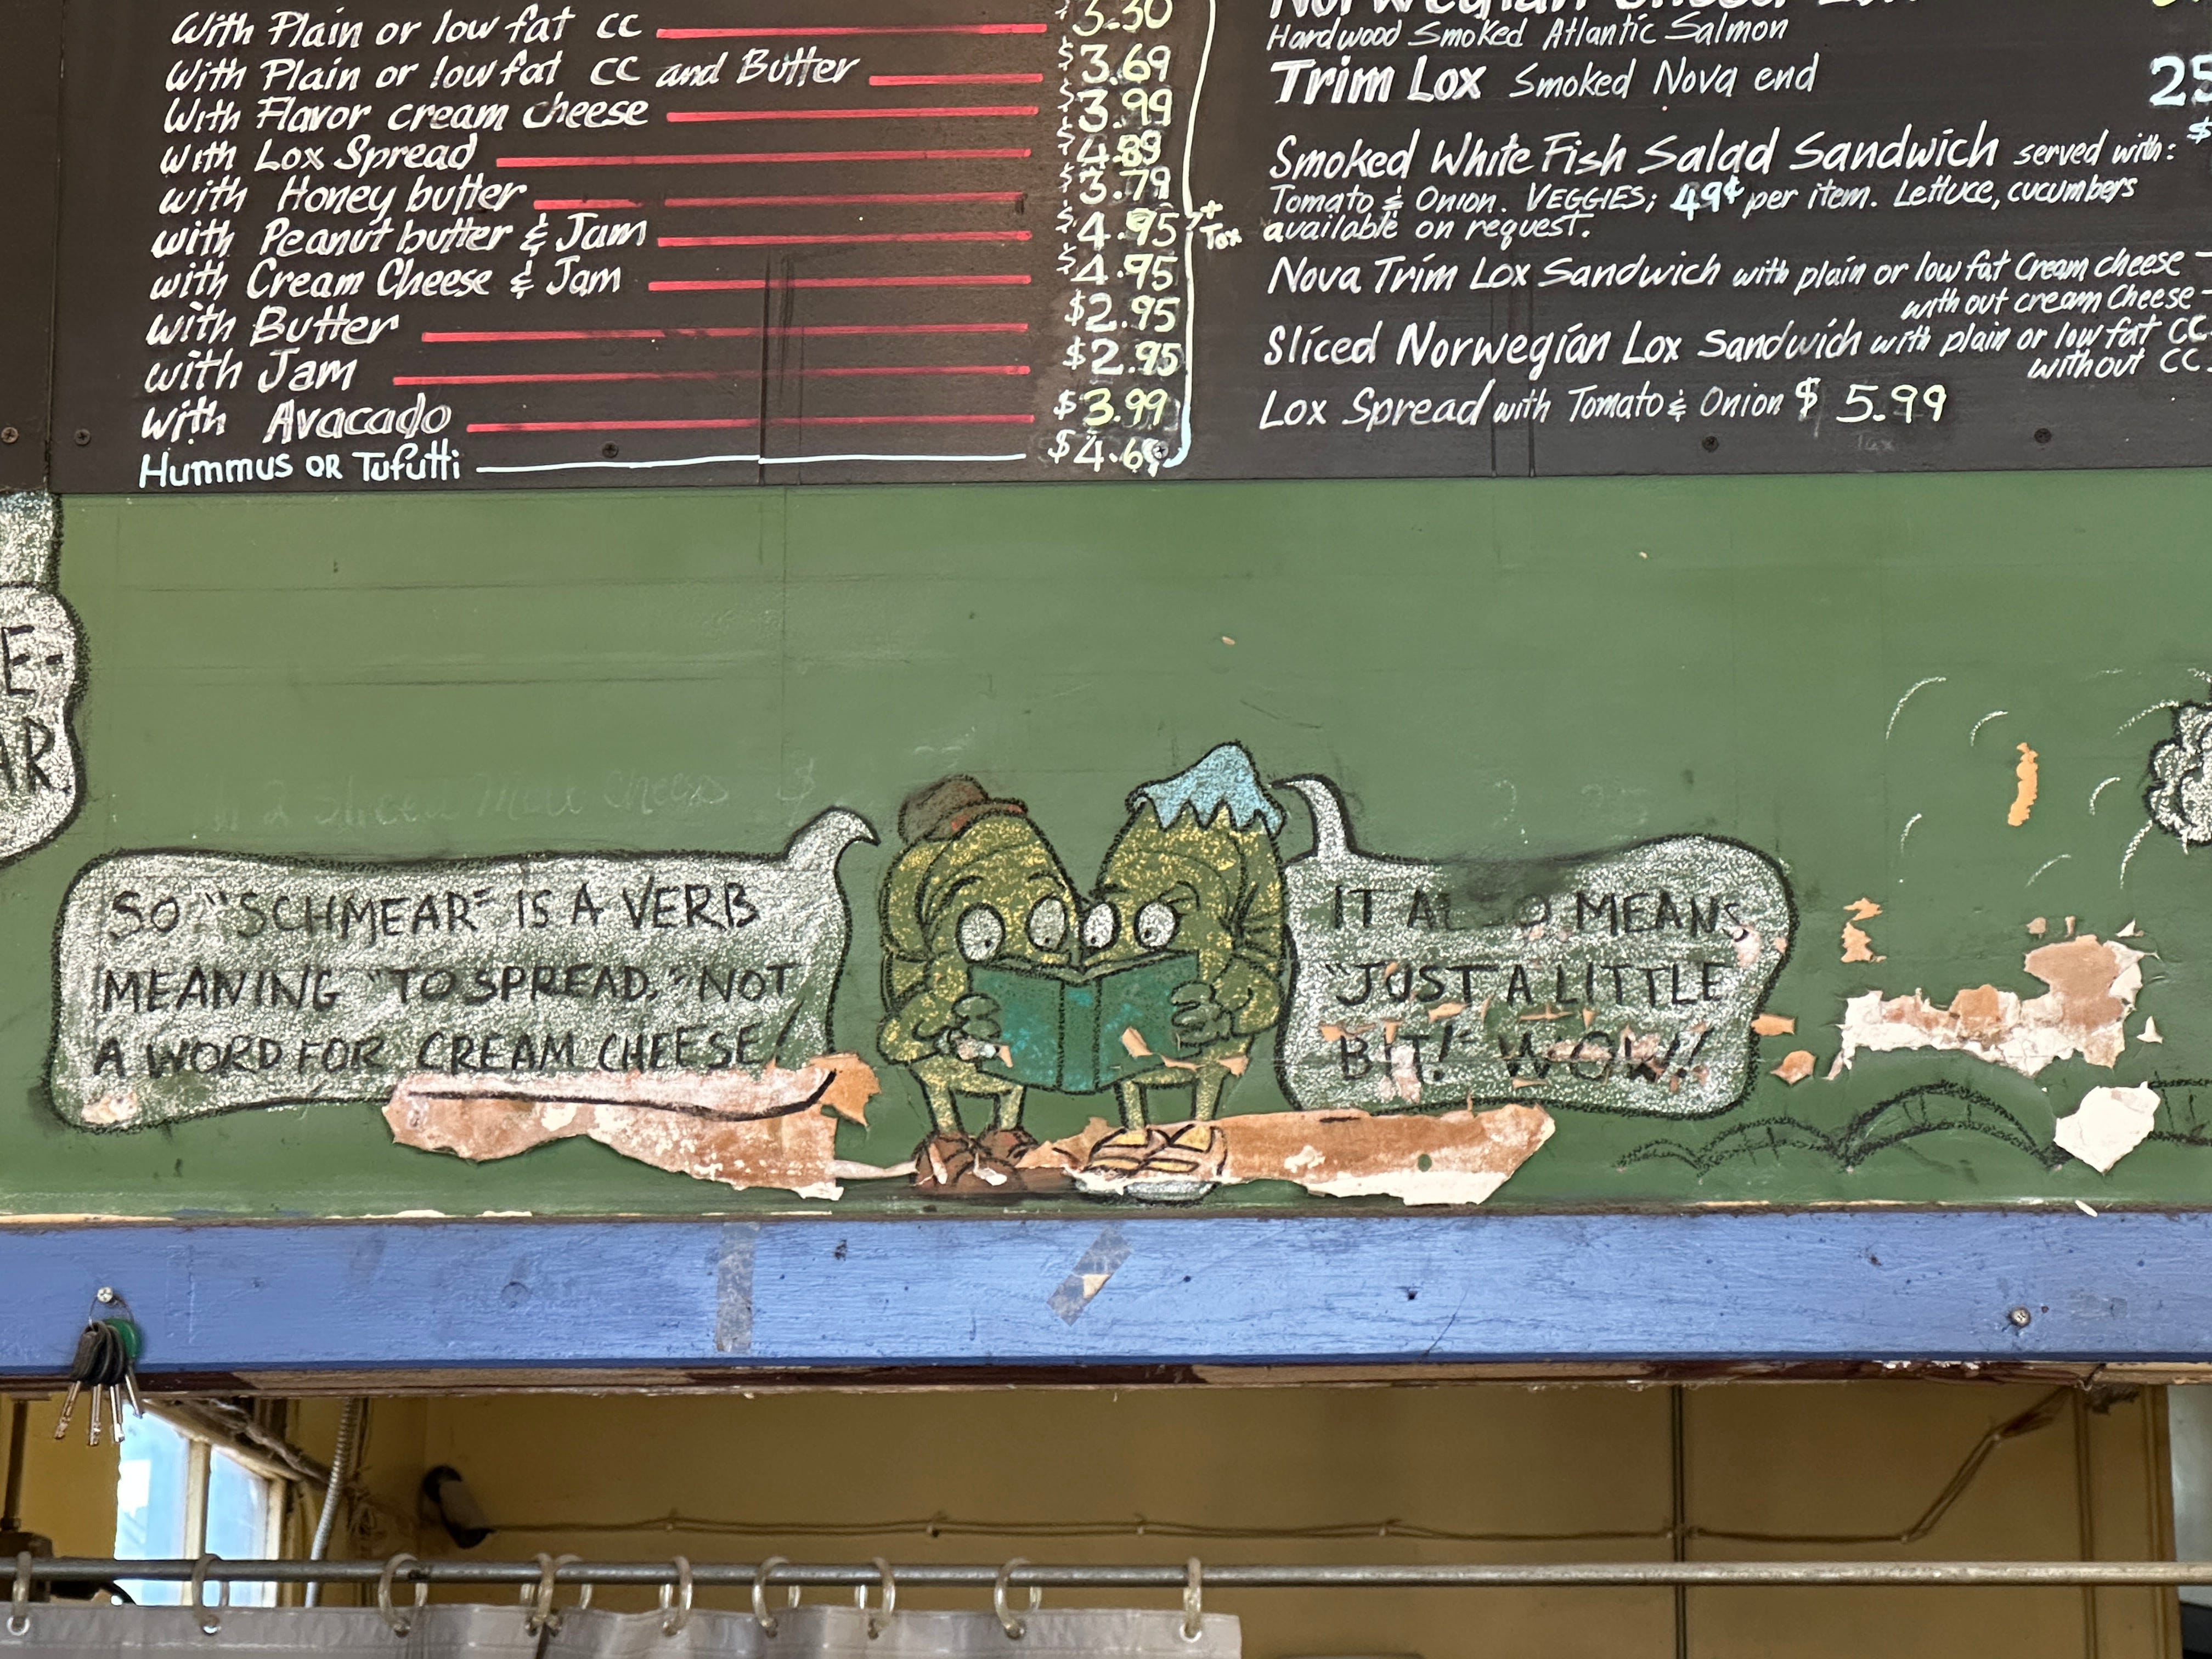 With Plain or low fat CC $3.50
With Plain or low fat CC and Butter $3.69
With Flavor cream cheese $3.99
with Lox Spread $4.89
with Honey butter $3.79
with Peanut butter & Jam $4.95
with Cream Cheese & Jam $4.95
with Butter $2.95
with Jam $2.95
with Avacado $3.99
Hummus OR Tufutti $4.69
+
Tax
Norwegian Sliced
Hardwood Smoked Atlantic Salmon
Trim Lox Smoked Nova end 25
Smoked White Fish Salad Sandwich served with: $
Tomato & Onion. VEGGIES; 49¢ per item. Lettuce, cucumbers
available on request.
Nova Trim Lox Sandwich with plain or low fat Cream cheese
with out cream Cheese
Sliced Norwegian Lox Sandwich with plain or low fat CC
without CC
Lox Spread with Tomato & Onion $ 5.99
Tax
E-
AR
SO "SCHMEAR" IS A VERB
MEANING "TO SPREAD," NOT
A WORD FOR CREAM CHEESE!
IT ALSO MEANS
"JUST A LITTLE
BIT!" WOW!